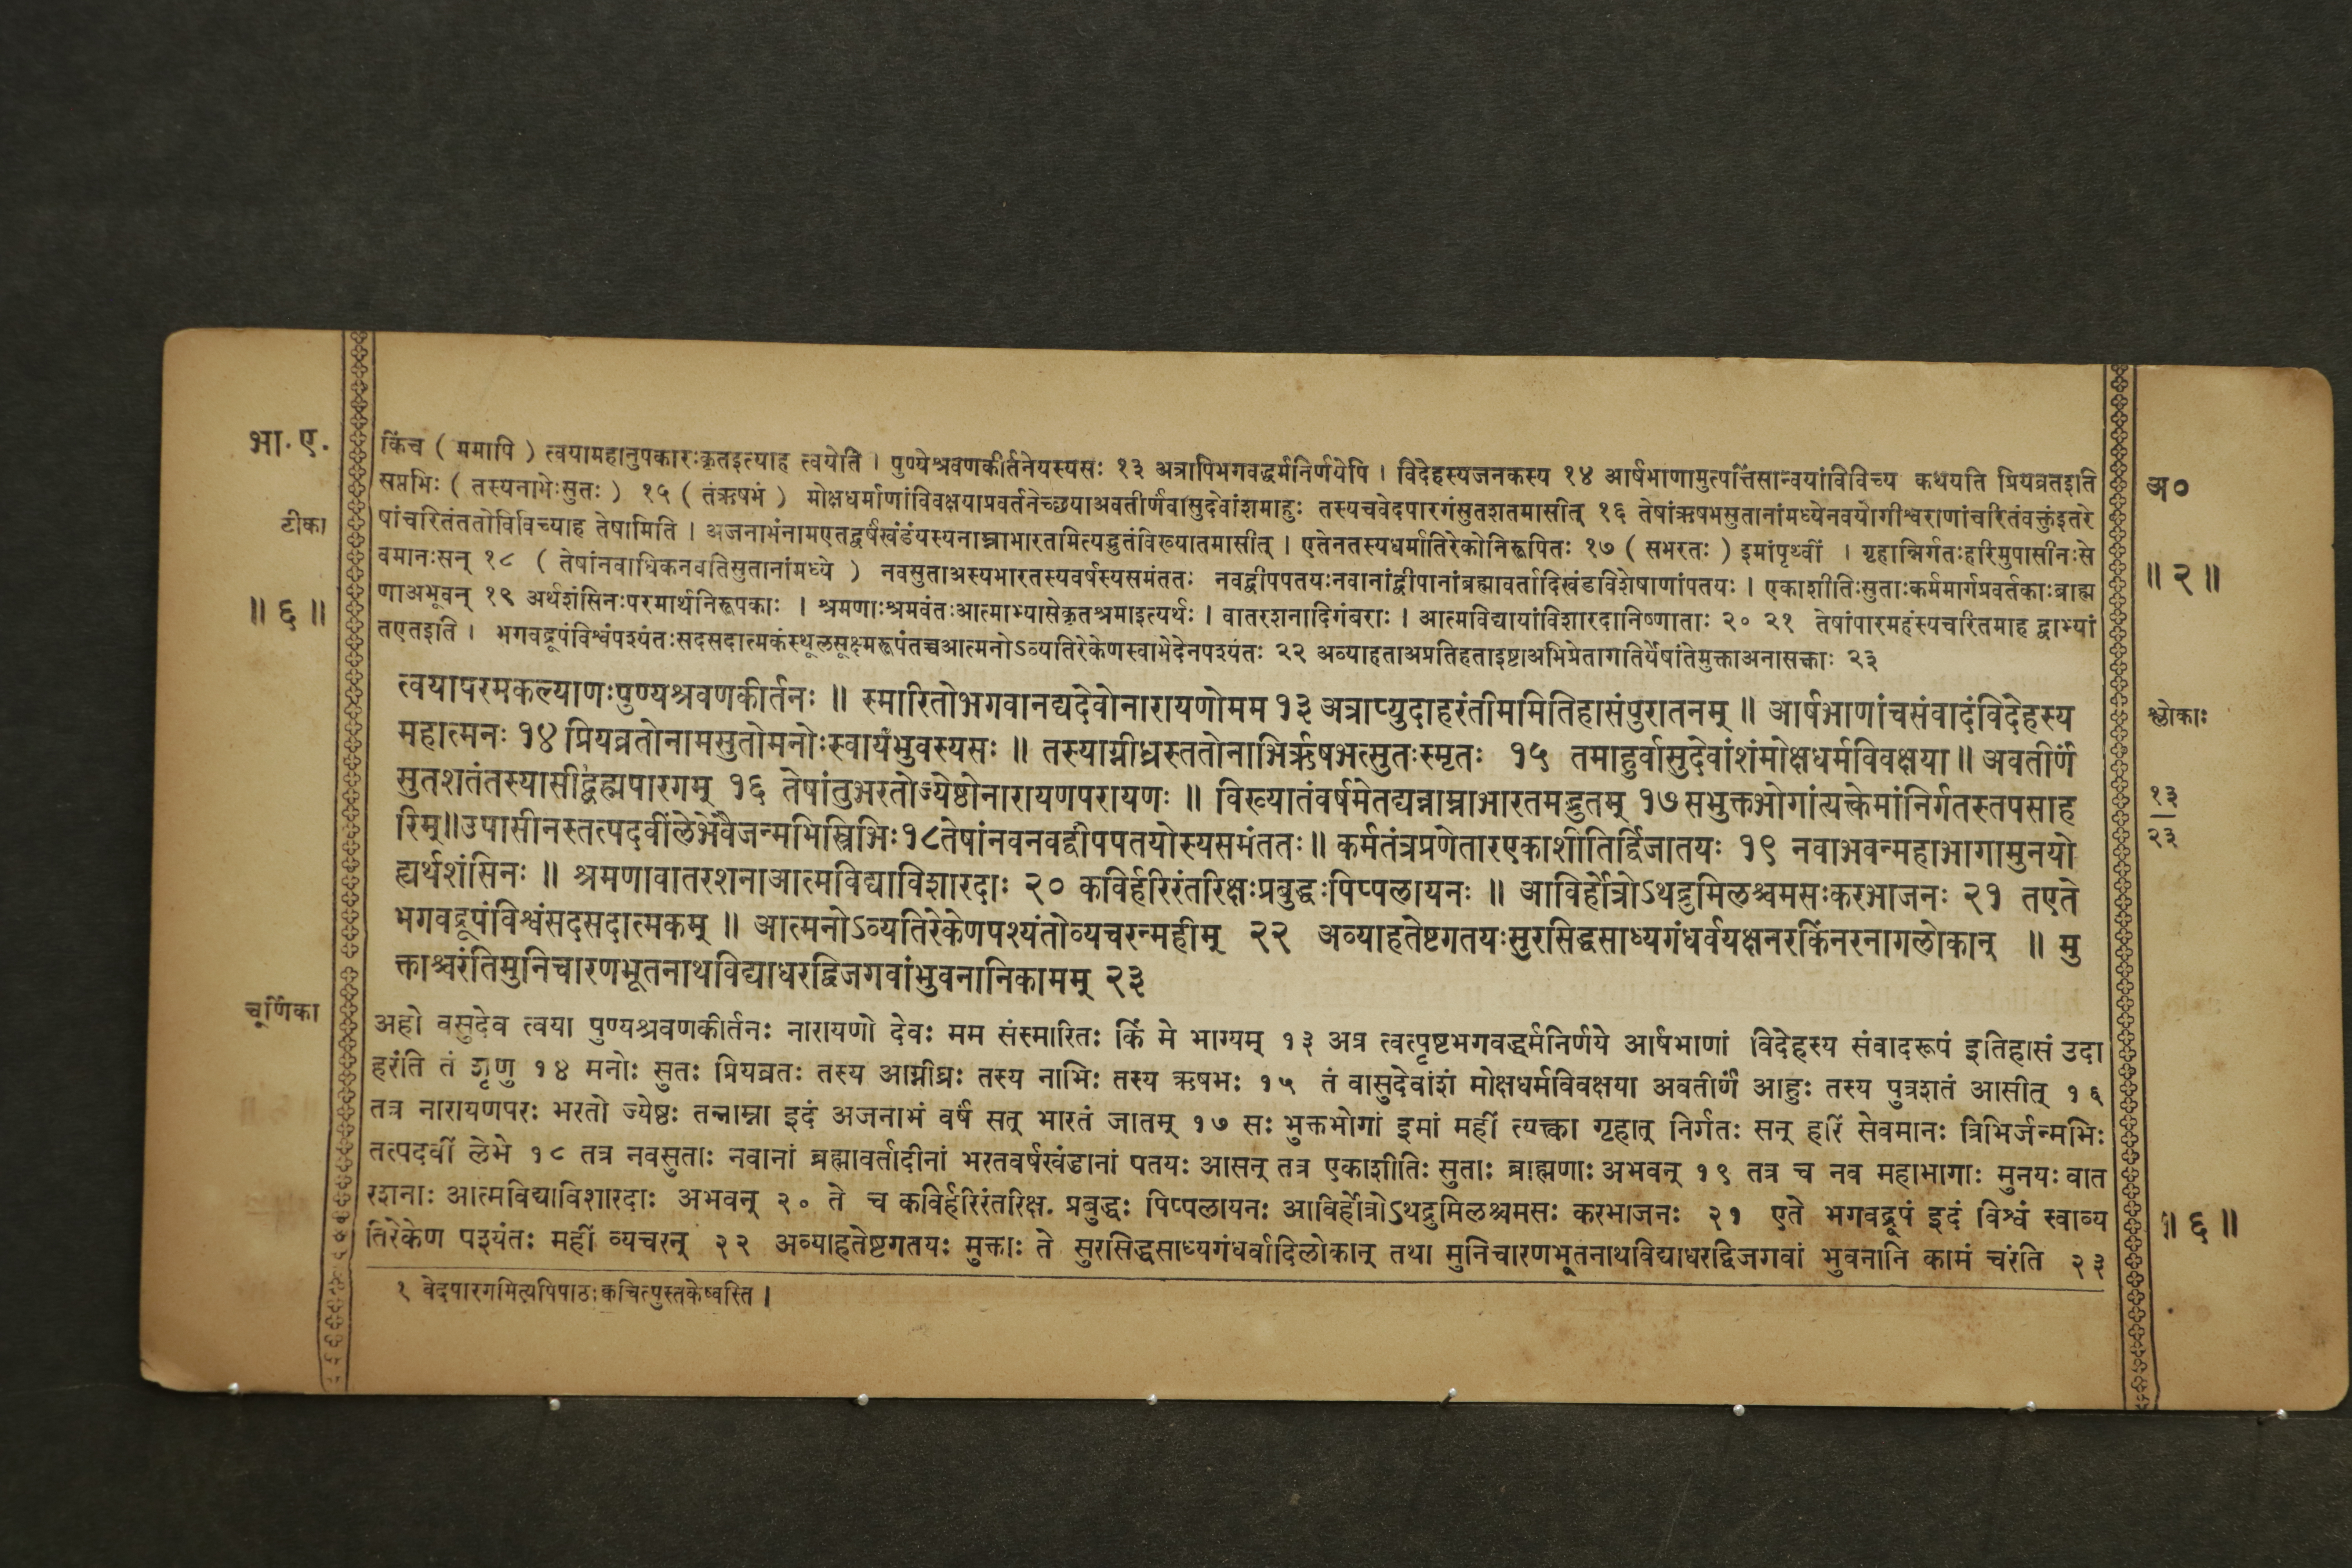 भा. ए.
टीका
॥ ६ ॥
चूर्णिका
किंच ( ममापि ) त्वयामहानुपकारःकृतइत्याह त्वयेति । पुण्येश्रवणकीर्तनेयस्यसः १३ अत्रापिभगवद्धर्मनिर्णयेपि । विदेहस्यजनकस्य १४ आर्षभाणामुत्पत्तिंसान्वयांविविच्य कथयति प्रियव्रतइति
सप्तभिः ( तस्यनाभेःसुतः ) १५ ( तंऋषभं ) मोक्षधर्माणांविवक्षयाप्रवर्तनेच्छयाअवतीर्णंवासुदेवांशमाहुः तस्यचवेदपारगंसुतशतमासीत् १६ तेषांऋषभसुतानांमध्येनवयोगीश्वराणांचरितंवक्तुंइतरे
षांचरितंततोविविच्याह तेषामिति । अजनाभंनामएतद्वर्षंखंडंयस्यनाम्नाभारतमित्यद्भुतंविख्यातमासीत् । एतेनतस्यधर्मातिरेकोनिरूपितः १७ ( सभरतः ) इमांपृथ्वीं । गृहान्निर्गतःहरिमुपासीनःसे
वमानःसन् १८ ( तेषांनवाधिकनवतिसुतानांमध्ये ) नवसुताअस्यभारतस्यवर्षस्यसमंततः नवद्वीपपतयःनवानांद्वीपानांब्रह्मावर्तादिखंडविशेषाणांपतयः । एकाशीतिःसुताःकर्ममार्गप्रवर्तकाःब्राह्म
णाअभूवन् १९ अर्थशंसिनःपरमार्थनिरूपकाः । श्रमणाःश्रमवंतःआत्माभ्यासेकृतश्रमाइत्यर्थः । वातरशनादिगंबराः । आत्मविद्यायांविशारदानिष्णाताः २० २१ तेषांपारमहंस्यचरितमाह द्वाभ्यां
तएतइति । भगवद्रूपंविश्वंपश्यंतःसदसदात्मकंस्थूलसूक्ष्मरूपंतच्चआत्मनोऽव्यतिरेकेणस्वाभेदेनपश्यंतः २२ अव्याहताअप्रतिहताइष्टाअभिप्रेतागतिर्येषांतेमुक्ताअनासक्ताः २३
त्वयापरमकल्याणःपुण्यश्रवणकीर्तनः ॥ स्मारितोभगवानद्यदेवोनारायणोमम १३ अत्राप्युदाहरंतीममितिहासंपुरातनम् ॥ आर्षभाणांचसंवादंविदेहस्य
महात्मनः १४ प्रियव्रतोनामसुतोमनोःस्वायंभुवस्यसः ॥ तस्याग्नीध्रस्ततोनाभिर्ऋषभत्सुतःस्मृतः १५ तमाहुर्वासुदेवांशंमोक्षधर्मविवक्षया ॥ अवतीर्णं
सुतशतंतस्यासीद्ब्रह्मपारगम् १६ तेषांतुभरतोज्येष्ठोनारायणपरायणः ॥ विख्यातंवर्षमेतद्यन्नाम्नाभारतमद्भुतम् १७ सभुक्तभोगांत्यक्त्वेमांनिर्गतस्तपसाह
रिम्॥उपासीनस्तत्पदवींलेभेवैजन्मभिस्त्रिभिः१८तेषांनवनवद्वीपपतयोस्यसमंततः॥ कर्मतंत्रप्रणेतारएकाशीतिर्द्विजातयः १९ नवाभवन्महाभागामुनयो
ह्यर्थशंसिनः ॥ श्रमणावातरशनाआत्मविद्याविशारदाः २० कविर्हरिरंतरिक्षःप्रबुद्धःपिप्पलायनः ॥ आविर्होत्रोऽथद्रुमिलश्चमसःकरभाजनः २१ तएते
भगवद्रूपंविश्वंसदसदात्मकम् ॥ आत्मनोऽव्यतिरेकेणपश्यंतोव्यचरन्महीम् २२ अव्याहतेष्टगतयःसुरसिद्धसाध्यगंधर्वयक्षनरकिंनरनागलोकान् ॥ मु
क्ताश्चरंतिमुनिचारणभूतनाथविद्याधरद्विजगवांभुवनानिकामम् २३
अहो वसुदेव त्वया पुण्यश्रवणकीर्तनः नारायणो देवः मम संस्मारितः किं मे भाग्यम् १३ अत्र त्वत्पृष्टभगवद्धर्मनिर्णये आर्षभाणां विदेहस्य संवादरूपं इतिहासं उदा
हरंति तं शृणु १४ मनोः सुतः प्रियव्रतः तस्य आग्नीध्रः तस्य नाभिः तस्य ऋषभः १५ तं वासुदेवांशं मोक्षधर्मविवक्षया अवतीर्णं आहुः तस्य पुत्रशतं आसीत् १६
तत्र नारायणपरः भरतो ज्येष्ठः तन्नाम्ना इदं अजनाभं वर्षं सत् भारतं जातम् १७ सः भुक्तभोगां इमां महीं त्यक्त्वा गृहात् निर्गतः सन् हरिं सेवमानः त्रिभिर्जन्मभिः
तत्पदवीं लेभे १८ तत्र नवसुताः नवानां ब्रह्मावर्तादीनां भरतवर्षखंडानां पतयः आसन् तत्र एकाशीतिः सुताः ब्राह्मणाः अभवन् १९ तत्र च नव महाभागाः मुनयः वात
रशनाः आत्मविद्याविशारदाः अभवन् २० ते च कविर्हरिरंतरिक्ष. प्रबुद्धः पिप्पलायनः आविर्होत्रोऽथद्रुमिलश्चमसः करभाजनः २१ एते भगवद्रूपं इदं विश्वं स्वाव्य
तिरेकेण पश्यंतः महीं व्यचरन् २२ अव्याहतेष्टगतयः मुक्ताः ते सुरसिद्धसाध्यगंधर्वादिलोकान् तथा मुनिचारणभूतनाथविद्याधरद्विजगवां भुवनानि कामं चरंति २३
१ वेदपारगमित्यपिपाठःक्वचित्पुस्तकेष्वस्ति ।
अ०
॥ २ ॥
श्लोकाः
१३
२३
॥ ६ ॥